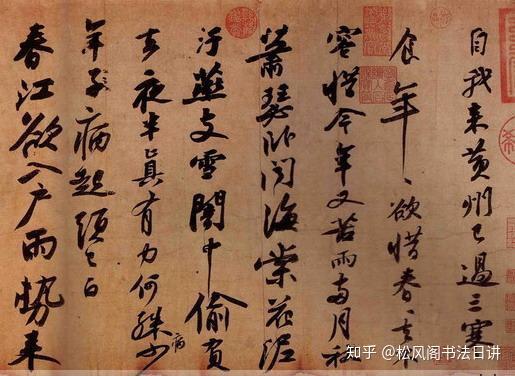 自我来黄州已過三寒
食年々欲惜春々去不
容惜今年又苦雨兩月秋
蕭瑟卧聞海棠花泥
汙燕支雪闇中偷負
去夜半真有力何殊少
病
年子病起頭已白
春江欲入戶雨勢来
知乎 @松风阁书法日讲